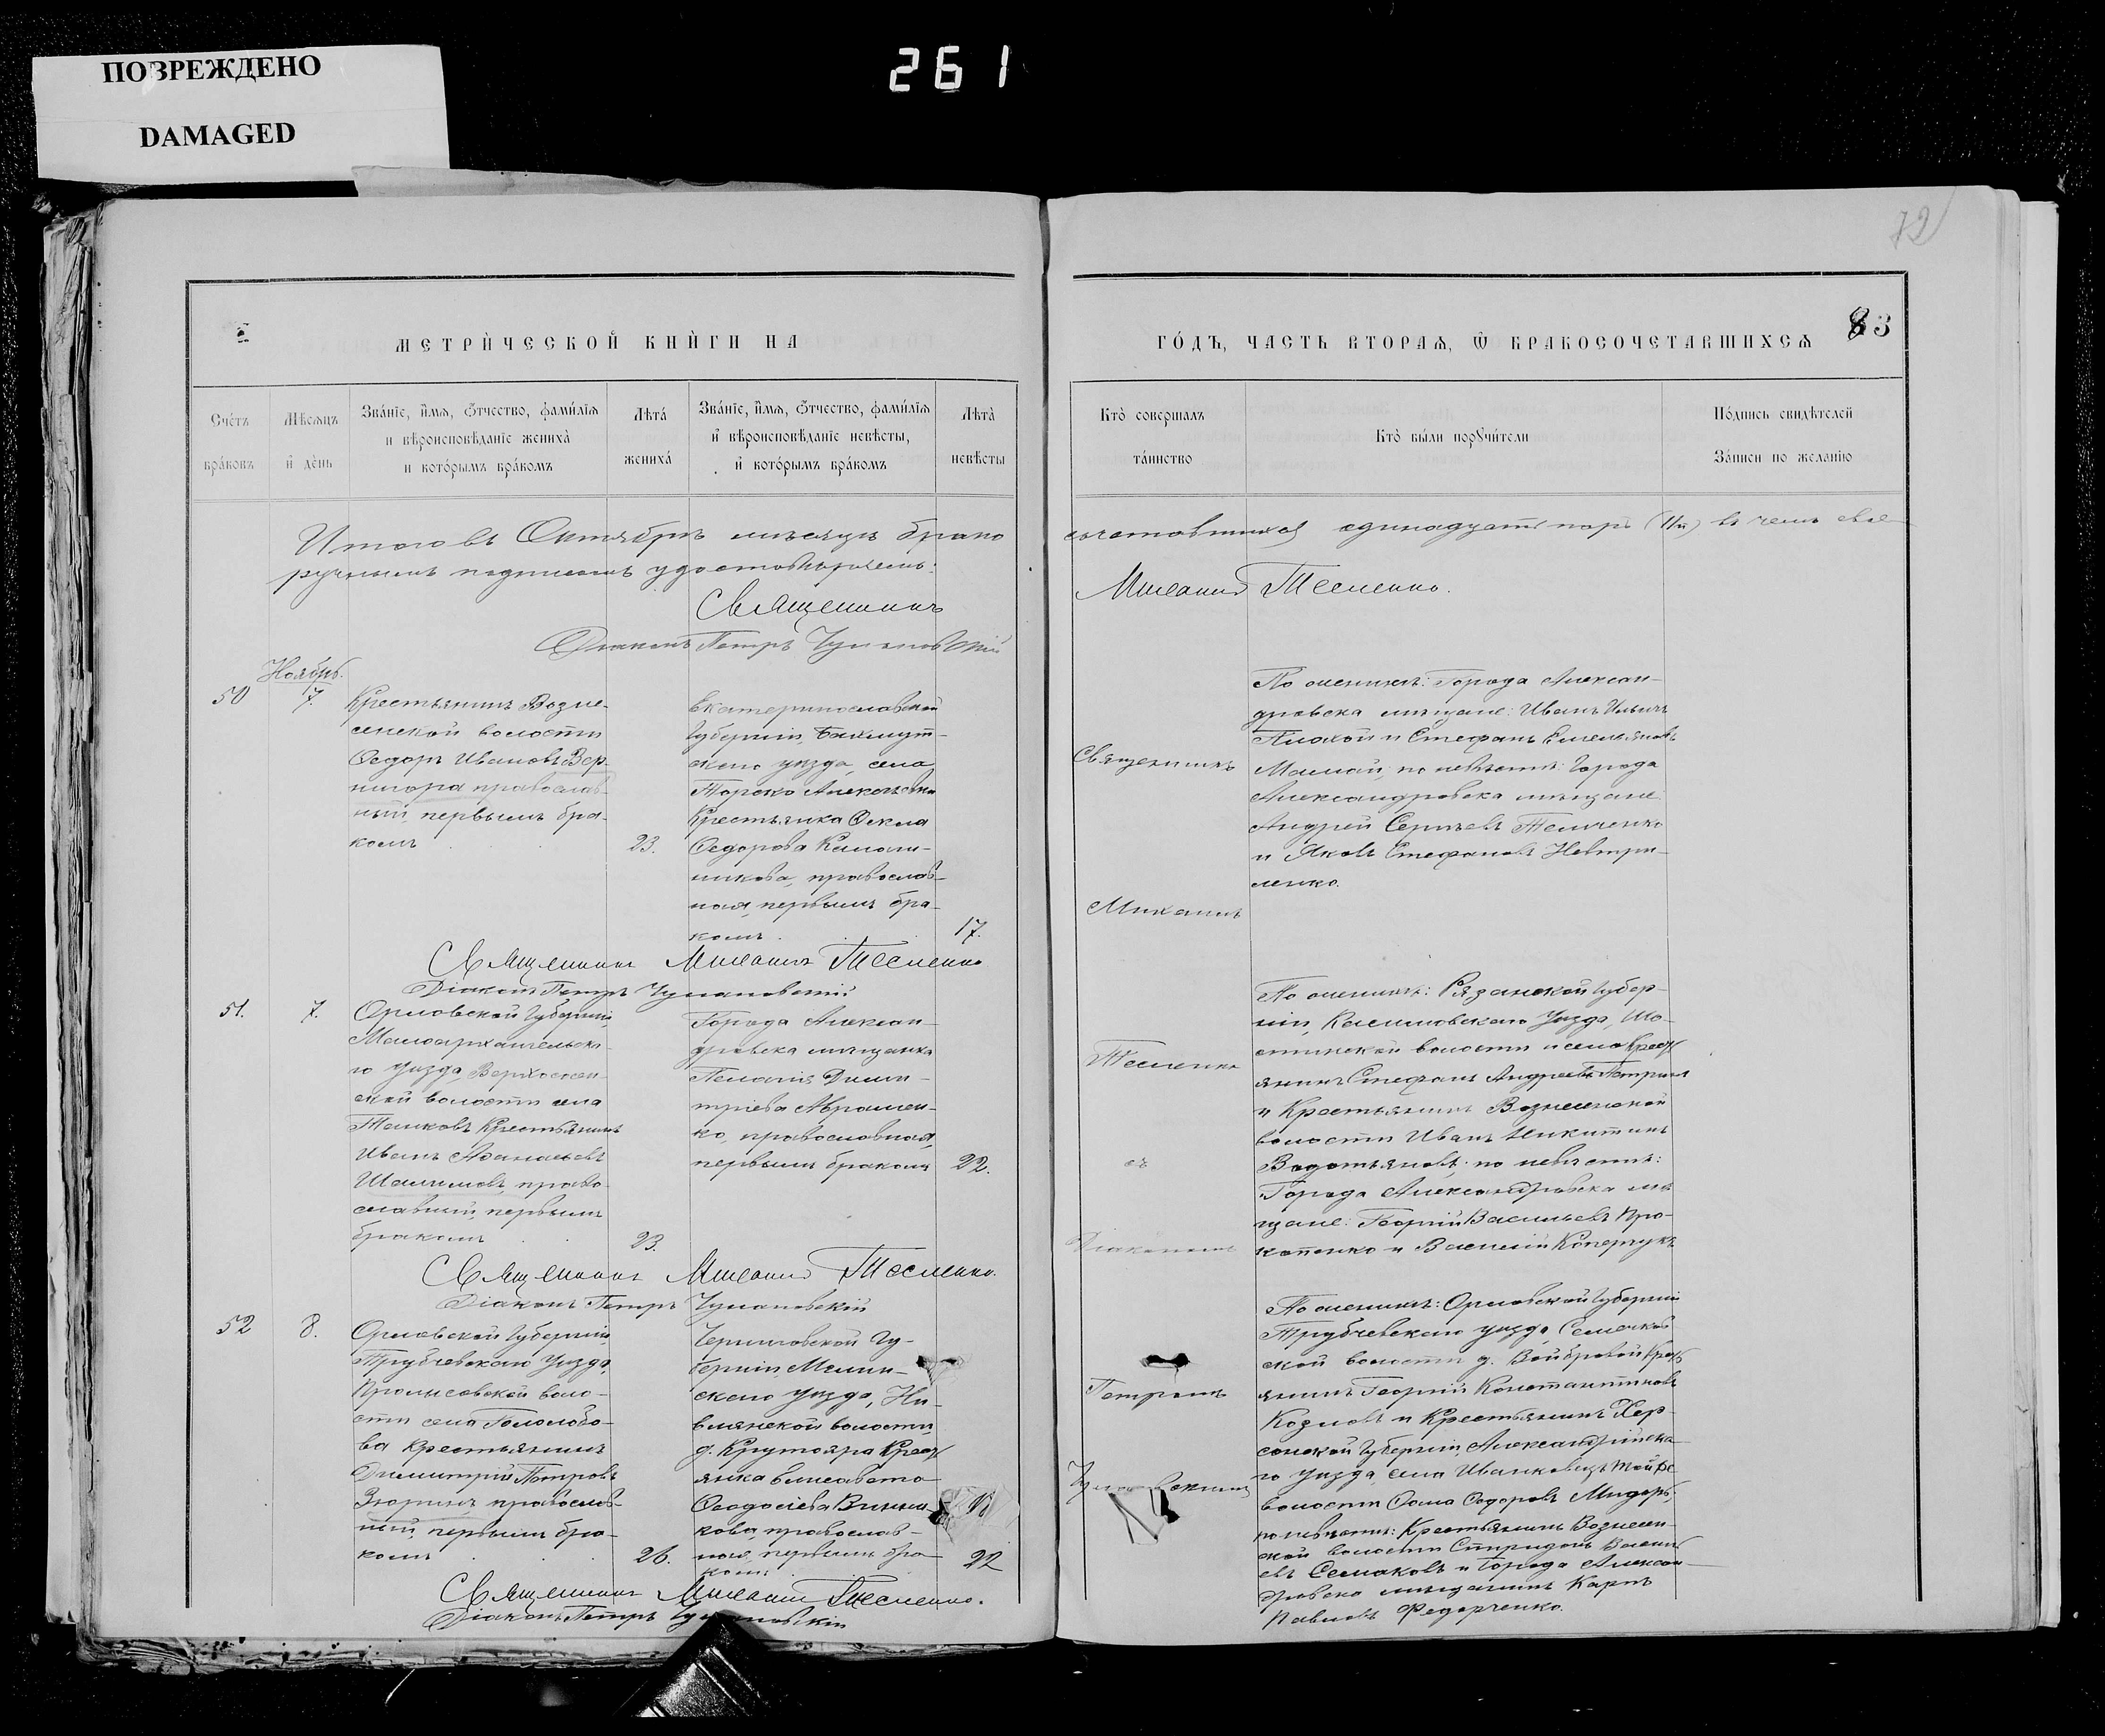 ПОВРЕЖДЕНО
DAMAGED
261
72
83
МЕТРИ́ЧЕСКОЙ КНИ́ГИ НА
ГО́ДЪ, ЧАСТЬ ВТОРАѦ, Ѿ БРАКОСОЧЕТАВШИХСѦ
Сче́тъ бра́ковъ
Мѣ́сяцъ и҆ де́нь
Зва́нїе, и҆́мѧ, ѻ҆́тчество, фами́лїѧ
и вѣроисповѣ́данїе жениха̀
и кото́рымъ бра́комъ
Лѣта̀
жениха̀
Зва́нїе, и҆́мѧ, ѻ҆́тчество, фами́лїѧ
и҆ вѣроисповѣ́данїе невѣ́сты,
и҆ кото́рымъ бра́комъ
Лѣта̀
невѣ́сты
Кто̀ соверша́лъ
та́инство
Кто̀ бы́ли порꙋчи́тели
По́дпись свидѣ́телей
За́писи по жела́нїю
Итого въ Октябрѣ мѣсяцѣ брако
сочетавшихся одинадцать паръ (11п) въ чемъ свое-
ручнымъ подписомъ удостовѣряемъ:
Священникъ
Михаилъ Тесленко.
Діаконъ Петръ Чулановскій
Ноябрь.
50
7.
Крестьянинъ Возне-
сенской волости
Ѳедоръ Ивановъ Вер-
нигора православ-
ный первымъ бра-
комъ
23.
Екатеринославской
Губерніи, Бахмут-
скаго уѣзда, села
Торско Алексѣевка
Крестьянка Ѳекла
Ѳедорова Калаш-
никова, православ-
ная, первымъ бра-
комъ
17.
Священникъ
Михаилъ
Тесленко
съ
Діакономъ
Петромъ
По женихѣ: Города Алексан-
дровска мѣщане: Иванъ Ильичъ
Плохой и Стефанъ Емельяновъ
Мамай; по невѣстѣ: Города
Александровска мѣщане
Андрей Сергѣевъ Темченко
и Яковъ Стефановъ
ленко.
Священникъ Михаилъ Тесленко
Діаконъ Петръ Чулановскій
51.
7.
Орловской Губерніи,
Малоархангельска-
го уѣзда,
ской волости села
Крестьянинъ
Иванъ Аѳанасьевъ
Шалимовъ, право-
славный, первымъ
бракомъ
23.
Города Алексан-
дровска мѣщанка
Пелагія Дими-
тріева Аврамен-
ко, православная,
первымъ бракомъ
22.
По женихѣ: Рязанской Губер-
ніи, Касимовскаго Уѣзда,
волости и села Крест
янинъ Стефанъ Андреевъ
и Крестьянинъ Вознесенской
волости Иванъ Никитинъ
по невѣстѣ:
Города Александровска мѣ
щане: Георгій Васильевъ Про-
копенко и Василій
Священникъ Михаилъ Тесленко.
Діаконъ Петръ Чулановскій
52
8.
Орловской Губерніи,
Трубчевскаго Уѣзда,
воло-
сти села Гололобо-
ва крестьянинъ
Димитрій Петровъ
Зюринъ, православ-
ный, первымъ бра-
комъ
26.
Черниговской Гу-
берніи,
скаго уѣзда, Ни-
влянской волости,
д. Крутояра Крест
янка Елисавета
Ѳеодосіева
кова православ-
ная, первымъ бра
комъ
22
По женихѣ: Орловской Губерніи
Трубчевскаго уѣзда, Семячков
ской волости д. Крест
янинъ Георгій Константиновъ
Козловъ и Крестьянинъ Хер-
сонской Губерніи, Александрійска-
го уѣзда, села той же
волости Ѳома Ѳедоровъ
по невѣстѣ: Крестьянинъ Вознесен-
ской волости Спиридонъ Василь
евъ Семаковъ и Города Алексан-
дровска мѣщанинъ Карпъ
Павловъ Федорченко.
Священникъ Михаилъ Тесленко.
Діаконъ Петръ Чулановскій